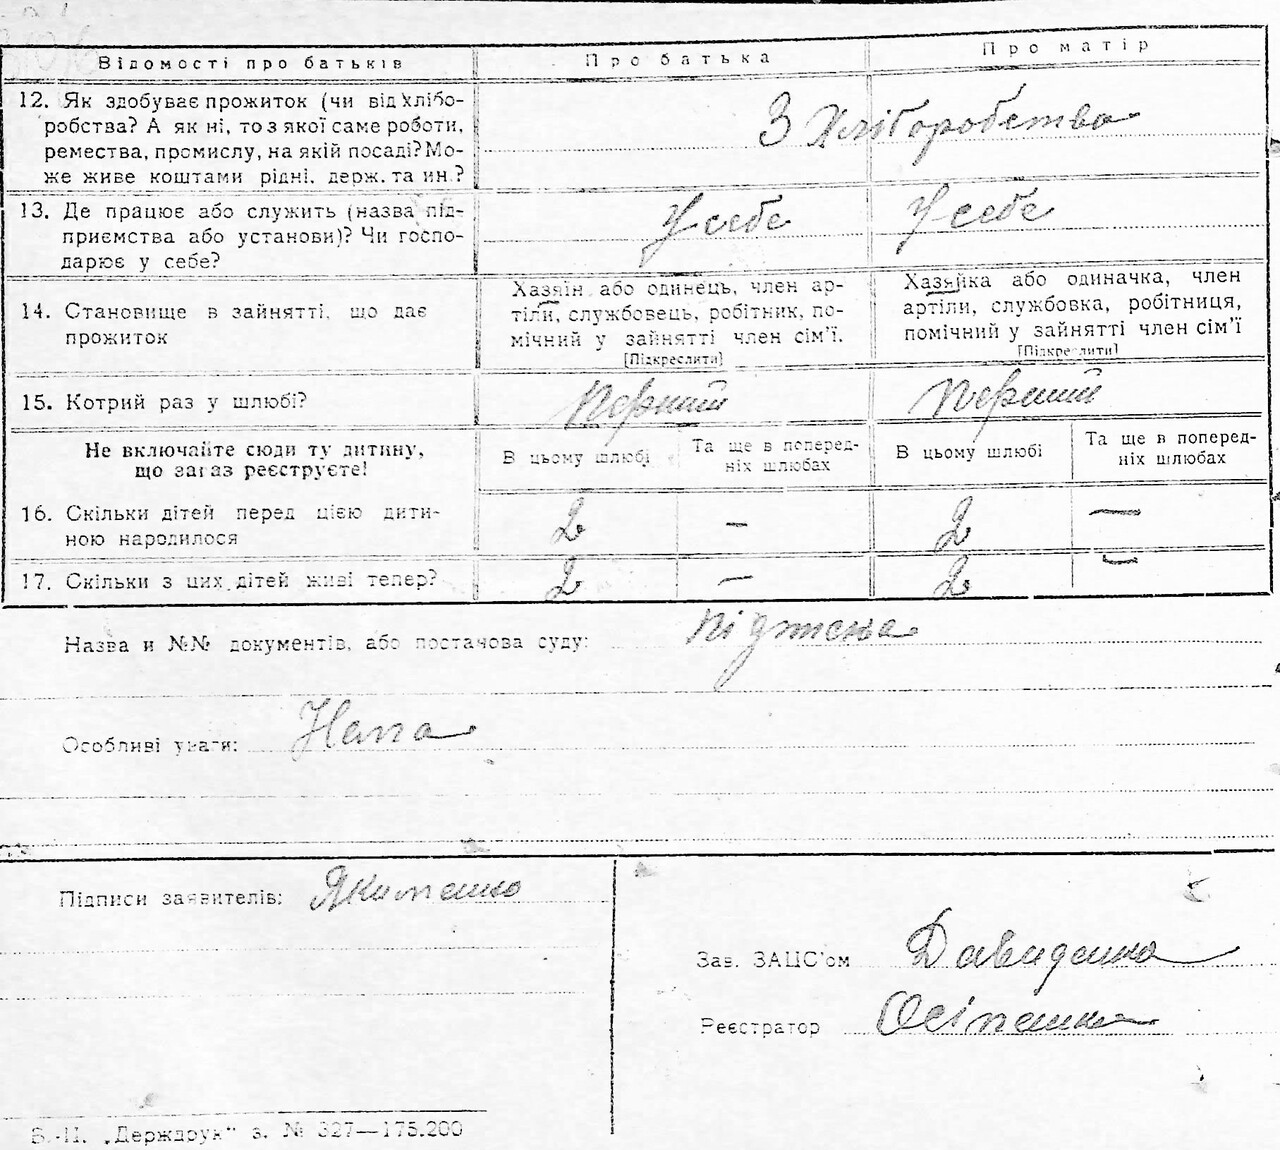 Відомості про батьків Про батька Про матір
12. Як здобуває прожиток (чи від хлібо-
робства? А як ні, то з якої саме роботи,
ремества, промислу, на якій посаді? Мо-
же живе коштами рідні, держ. та ин.?
З Хліборобства
13. Де працює або служить (назва під-
приємства або установи)? Чи госпо-
дарює у себе?
У себе У себе
14. Становище в зайнятті, що дає
прожиток
Хазяїн або одинець, член ар-
тіли, службовець, робітник, по-
мічний у зайнятті член сім'ї.
[Підкреслити]
Хазяйка або одиначка, член
артіли, службовка, робітниця,
помічний у зайнятті член сім'ї
[Підкреслити]
15. Котрий раз у шлюбі? Перший Перший
Не включайте сюди ту дитину,
що зараз реєструєте!
В цьому шлюбі
Та ще в поперед-
ніх шлюбах
В цьому шлюбі
Та ще в поперед-
ніх шлюбах
16. Скільки дітей перед цією дити-
ною народилося
2 — 2 —
17. Скільки з цих дітей живі тепер? 2 — 2 —
Назва и №№ документів, або постачова суду:
Особливі уваги:
Підписи заявителів: Якименко
Зав. ЗАЦС'ом Давиденко
Реєстратор Осіпенко
Б.-Ц. „Держдрук" з. № 327—175.200